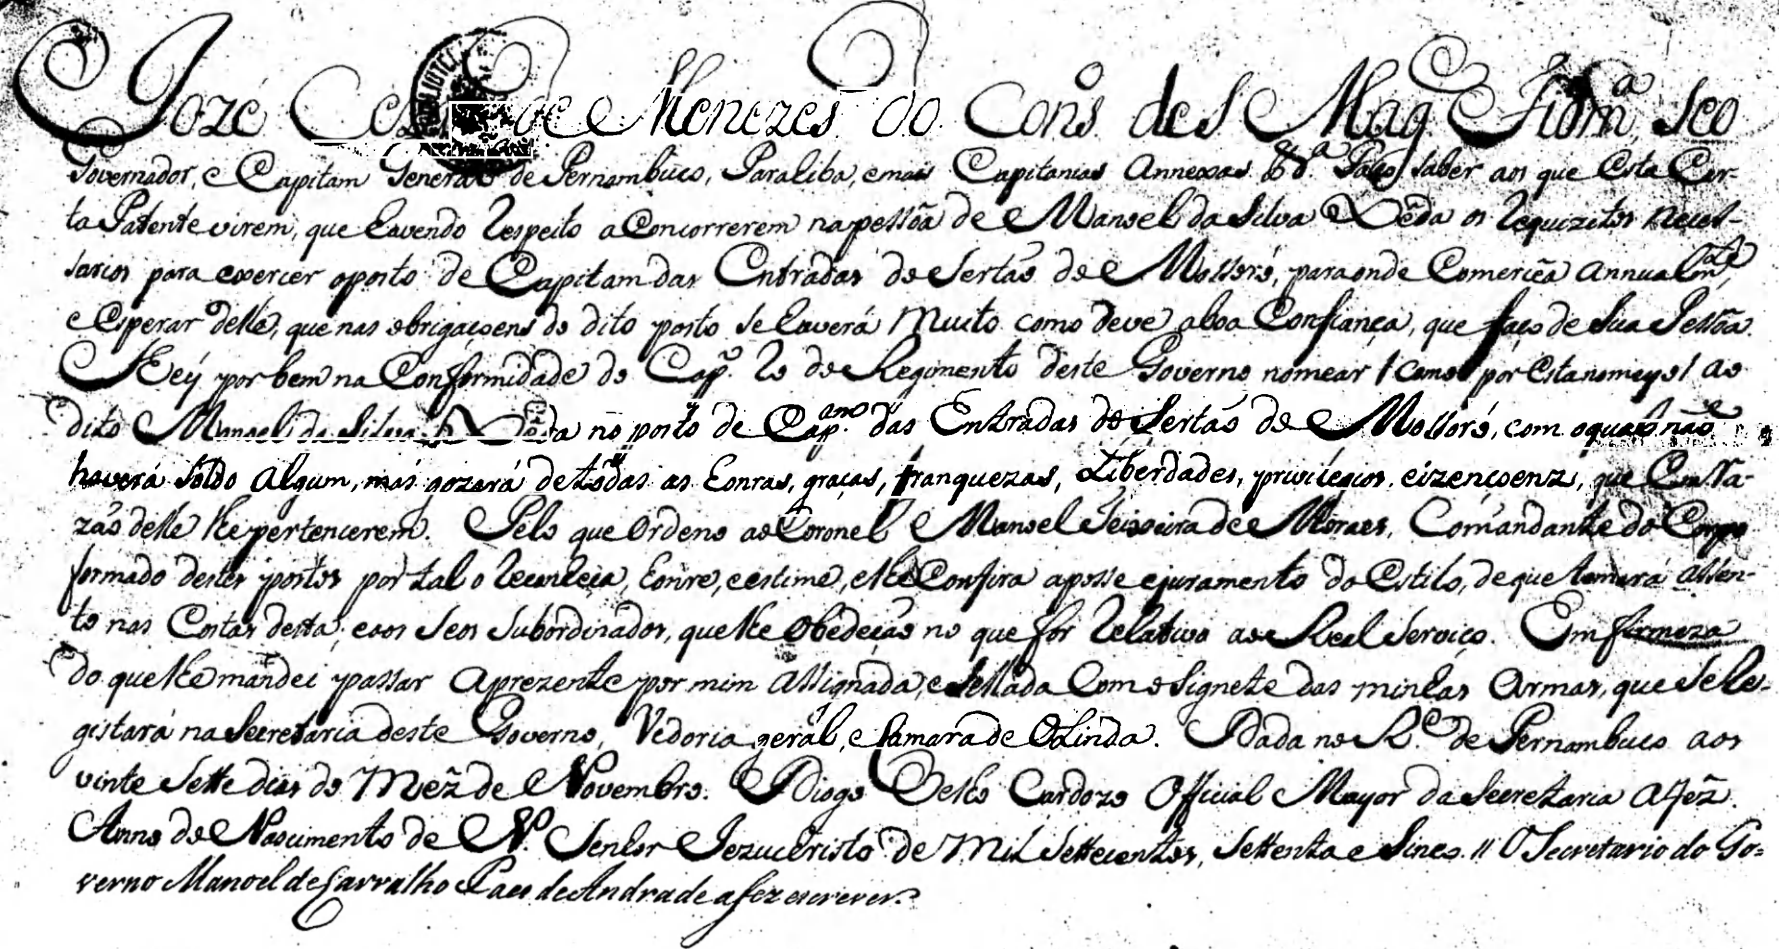 Jozé Cezar de Menezes do Cons. de S Mag.e Fidm.a seo
Governador, e Capitam General de Pernambuco, Paraiba, e mais Capitanias Annexas &.a Faço saber aos que esta Car-
ta Patente virem, que havendo respeito a Concorrerem na pessõa de Manoel da Silva os requizitos neces-
sarios para exercer o posto de Capitam das Entradas do Sertaõ de Mossoró, para onde Comercêa annualm.te
e Esperar delle, que nas obrigaçoens do dito posto se haverá Muito como deve a boa Confiança, que faço de Sua Pessõa.
Hey por bem na Conformidade do Cap.o do Regimento deste Governo nomear / como por esta nomeyo / ao
dito Manoel da Silva no posto de Cap.am das Entradas do Sertaõ de Mossoró, com o qual naõ
haverá Soldo algum, mas gozará de todas as honras, graças, franquezas, Liberdades, privilegios, e izençoenz, que Em Ra-
zaõ delle lhe pertencerem. Pelo que Ordeno ao Coronel Manoel Teixeira de Moraes, Comandante do Corpo
formado destes postos por tal o reconheça, honre, e estime, e lhe Confira a posse e juramento do Estilo, de que tomará assen-
to nas Costas desta; e aos Seos Subordinados, que lhe Obedeçaõ no que for relativo ao Real Serviço. Em firmeza
do que lhe mandei passar a prezente por mim assignada, e Sellada Com o Signete das minhas Armas, que Se Re-
gistará na Secretaria deste Governo, Vedoria geral, e Camara de Olinda. Dada no R.e de Pernambuco aos
vinte Sette dias do Mez de Novembro. Diogo Velho Cardozo Official Mayor da Secretaria a fez.
Anno do Nascimento de N. Senhor Jezuchristo de Mil Settecentos, Settenta e Sinco. // O Secretario do Go=
verno Manoel de Carvalho Paes de Andrade a fez escrever.